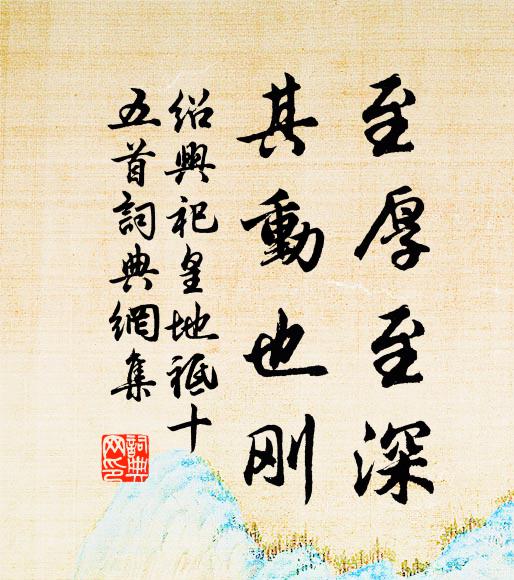 至厚至深
其動也刚
紹興祀皇地祗十
五首詞典網集
詞典网印